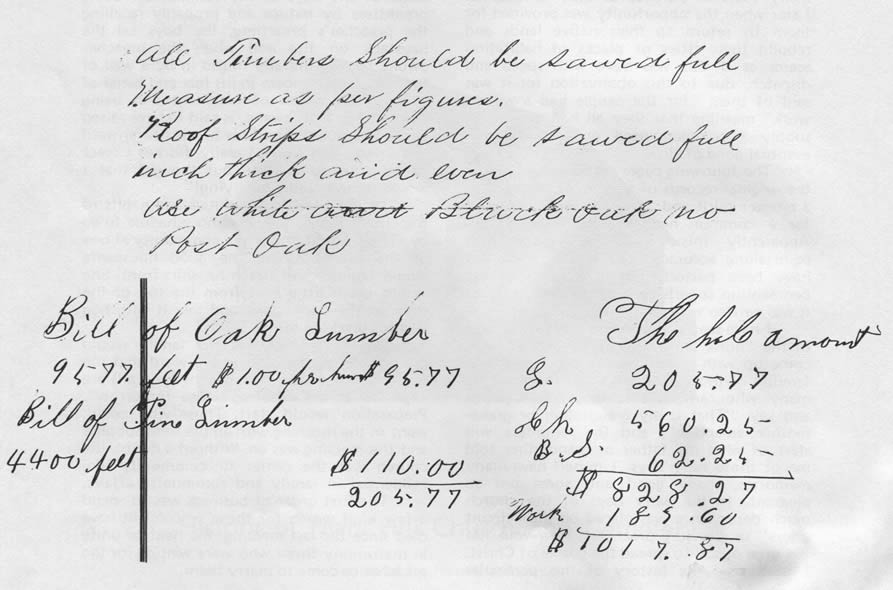 All Timbers Should be sawed full
Measure as per figures.
Roof Strips Should be sawed full
inch thick and even
Use White Black Oak no
Post Oak
Bill of Oak Lumber
9577 feet $1.00 per hund $95.77
Bill of Pine Lumber
4400 feet $110.00
205.77
The hole amount
L. 205.77
560.25
B.S. 62.25
$828.27
Work 189.60
$1017.87